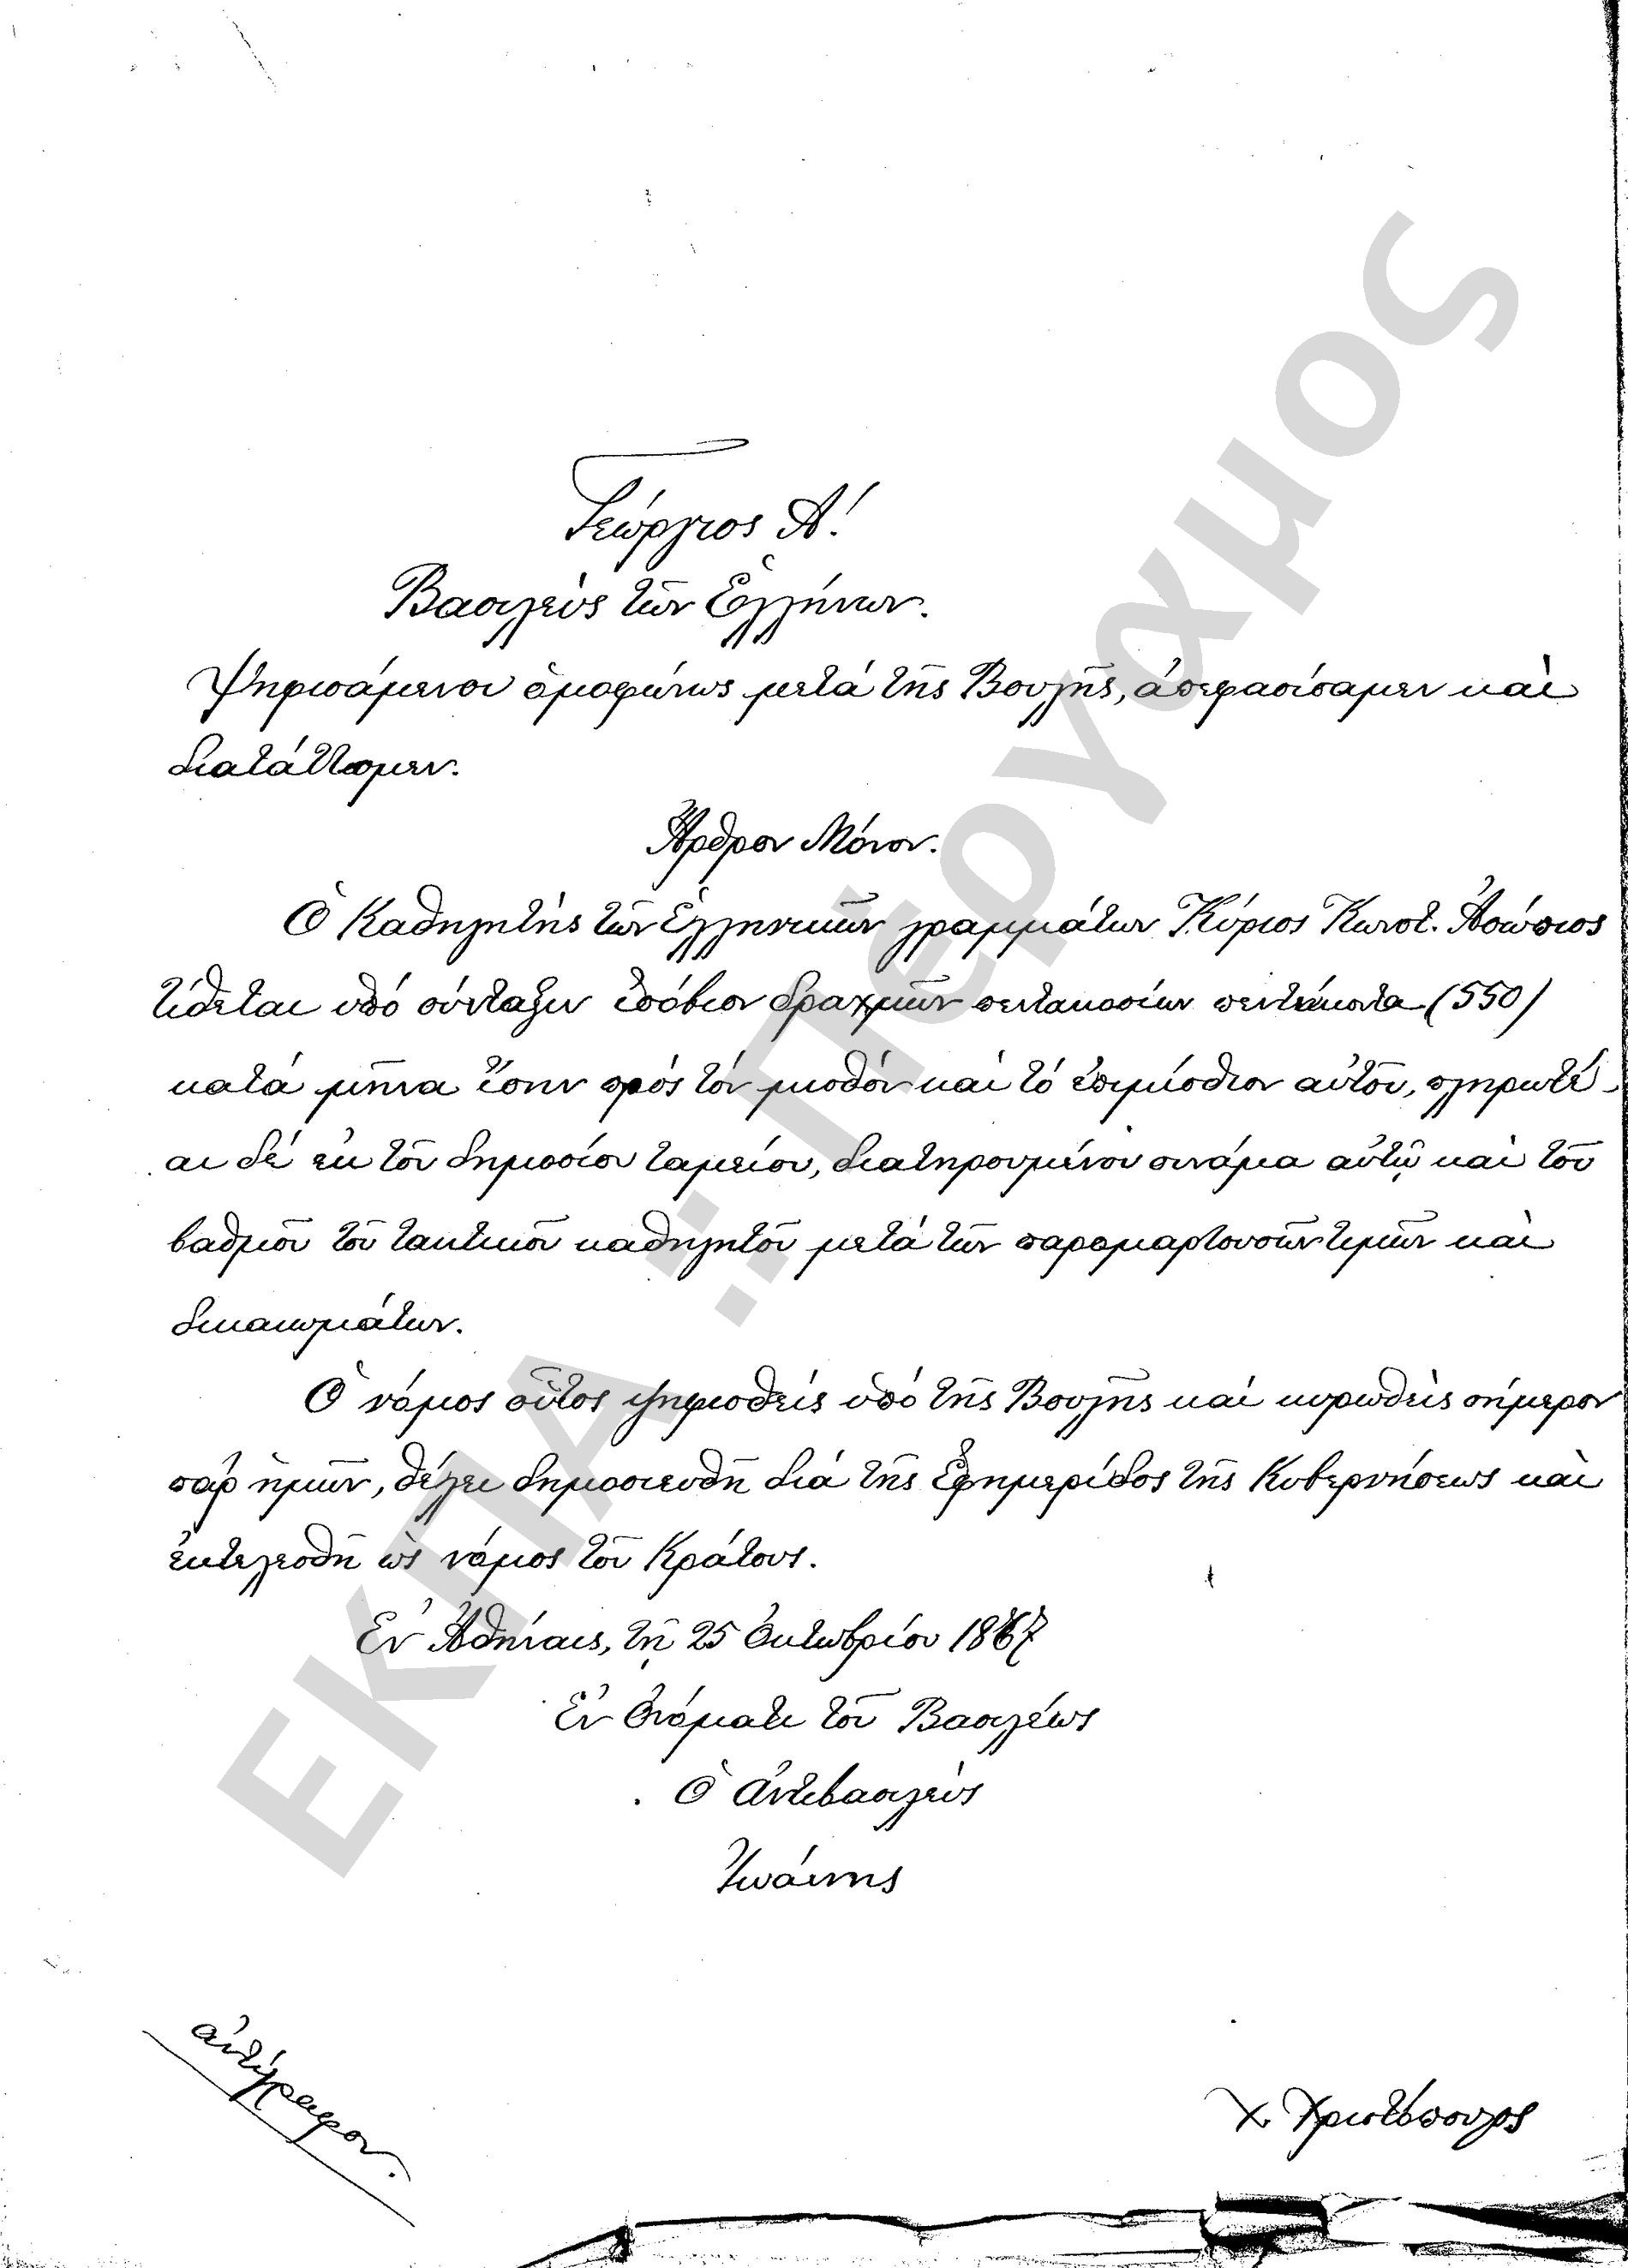 Γεώργιος Α!
Βασιλεὺς τῶν Ἑλλήνων.
Ψηφισάμενοι ὁμοφώνως μετά τῆς Βουλῆς, ἀπεφασίσαμεν καὶ
διατάττομεν.
Ἄρθρον Μόνον.
Ὁ Καθηγητὴς τῶν Ἑλληνικῶν γραμμάτων Κύριος Κωνστ. Ἀσώπιος
τίθεται ὑπό σύνταξιν ἰσόβιον δραχμῶν πεντακοσίων πεντήκοντα (550)
κατά μῆνα ἴσην πρός τόν μισθόν καί τό ἐπιμίσθιον αὐτοῦ, πληρωτέ-
αι δέ ἐκ τοῦ δημοσίου ταμείου, διατηρουμένου συνάμα αὐτῷ καὶ τοῦ
βαθμοῦ τοῦ τακτικοῦ καθηγητοῦ μετά τῶν παρομαρτουσῶν τιμῶν καὶ
δικαιωμάτων.
Ὁ νόμος οὗτος ψηφισθείς ὑπό τῆς Βουλῆς καί κυρωθεὶς σήμερον
παρ' ἡμῶν, θέλει δημοσιευθῆ διά τῆς Ἐφημερίδος τῆς Κυβερνήσεως καὶ
ἐκτελεσθῆ ὡς νόμος τοῦ Κράτους.
Ἐν Ἀθήναις, τῇ 25 Ὀκτωβρίου 1867
Ἐν Ὀνόματι τοῦ Βασιλέως
Ὁ Ἀντιβασιλεὺς
Ἰωάννης
ἀντίγραφον.
Χ. Χριστόπουλος
ΕΚΠΑ :: Πέργαμος